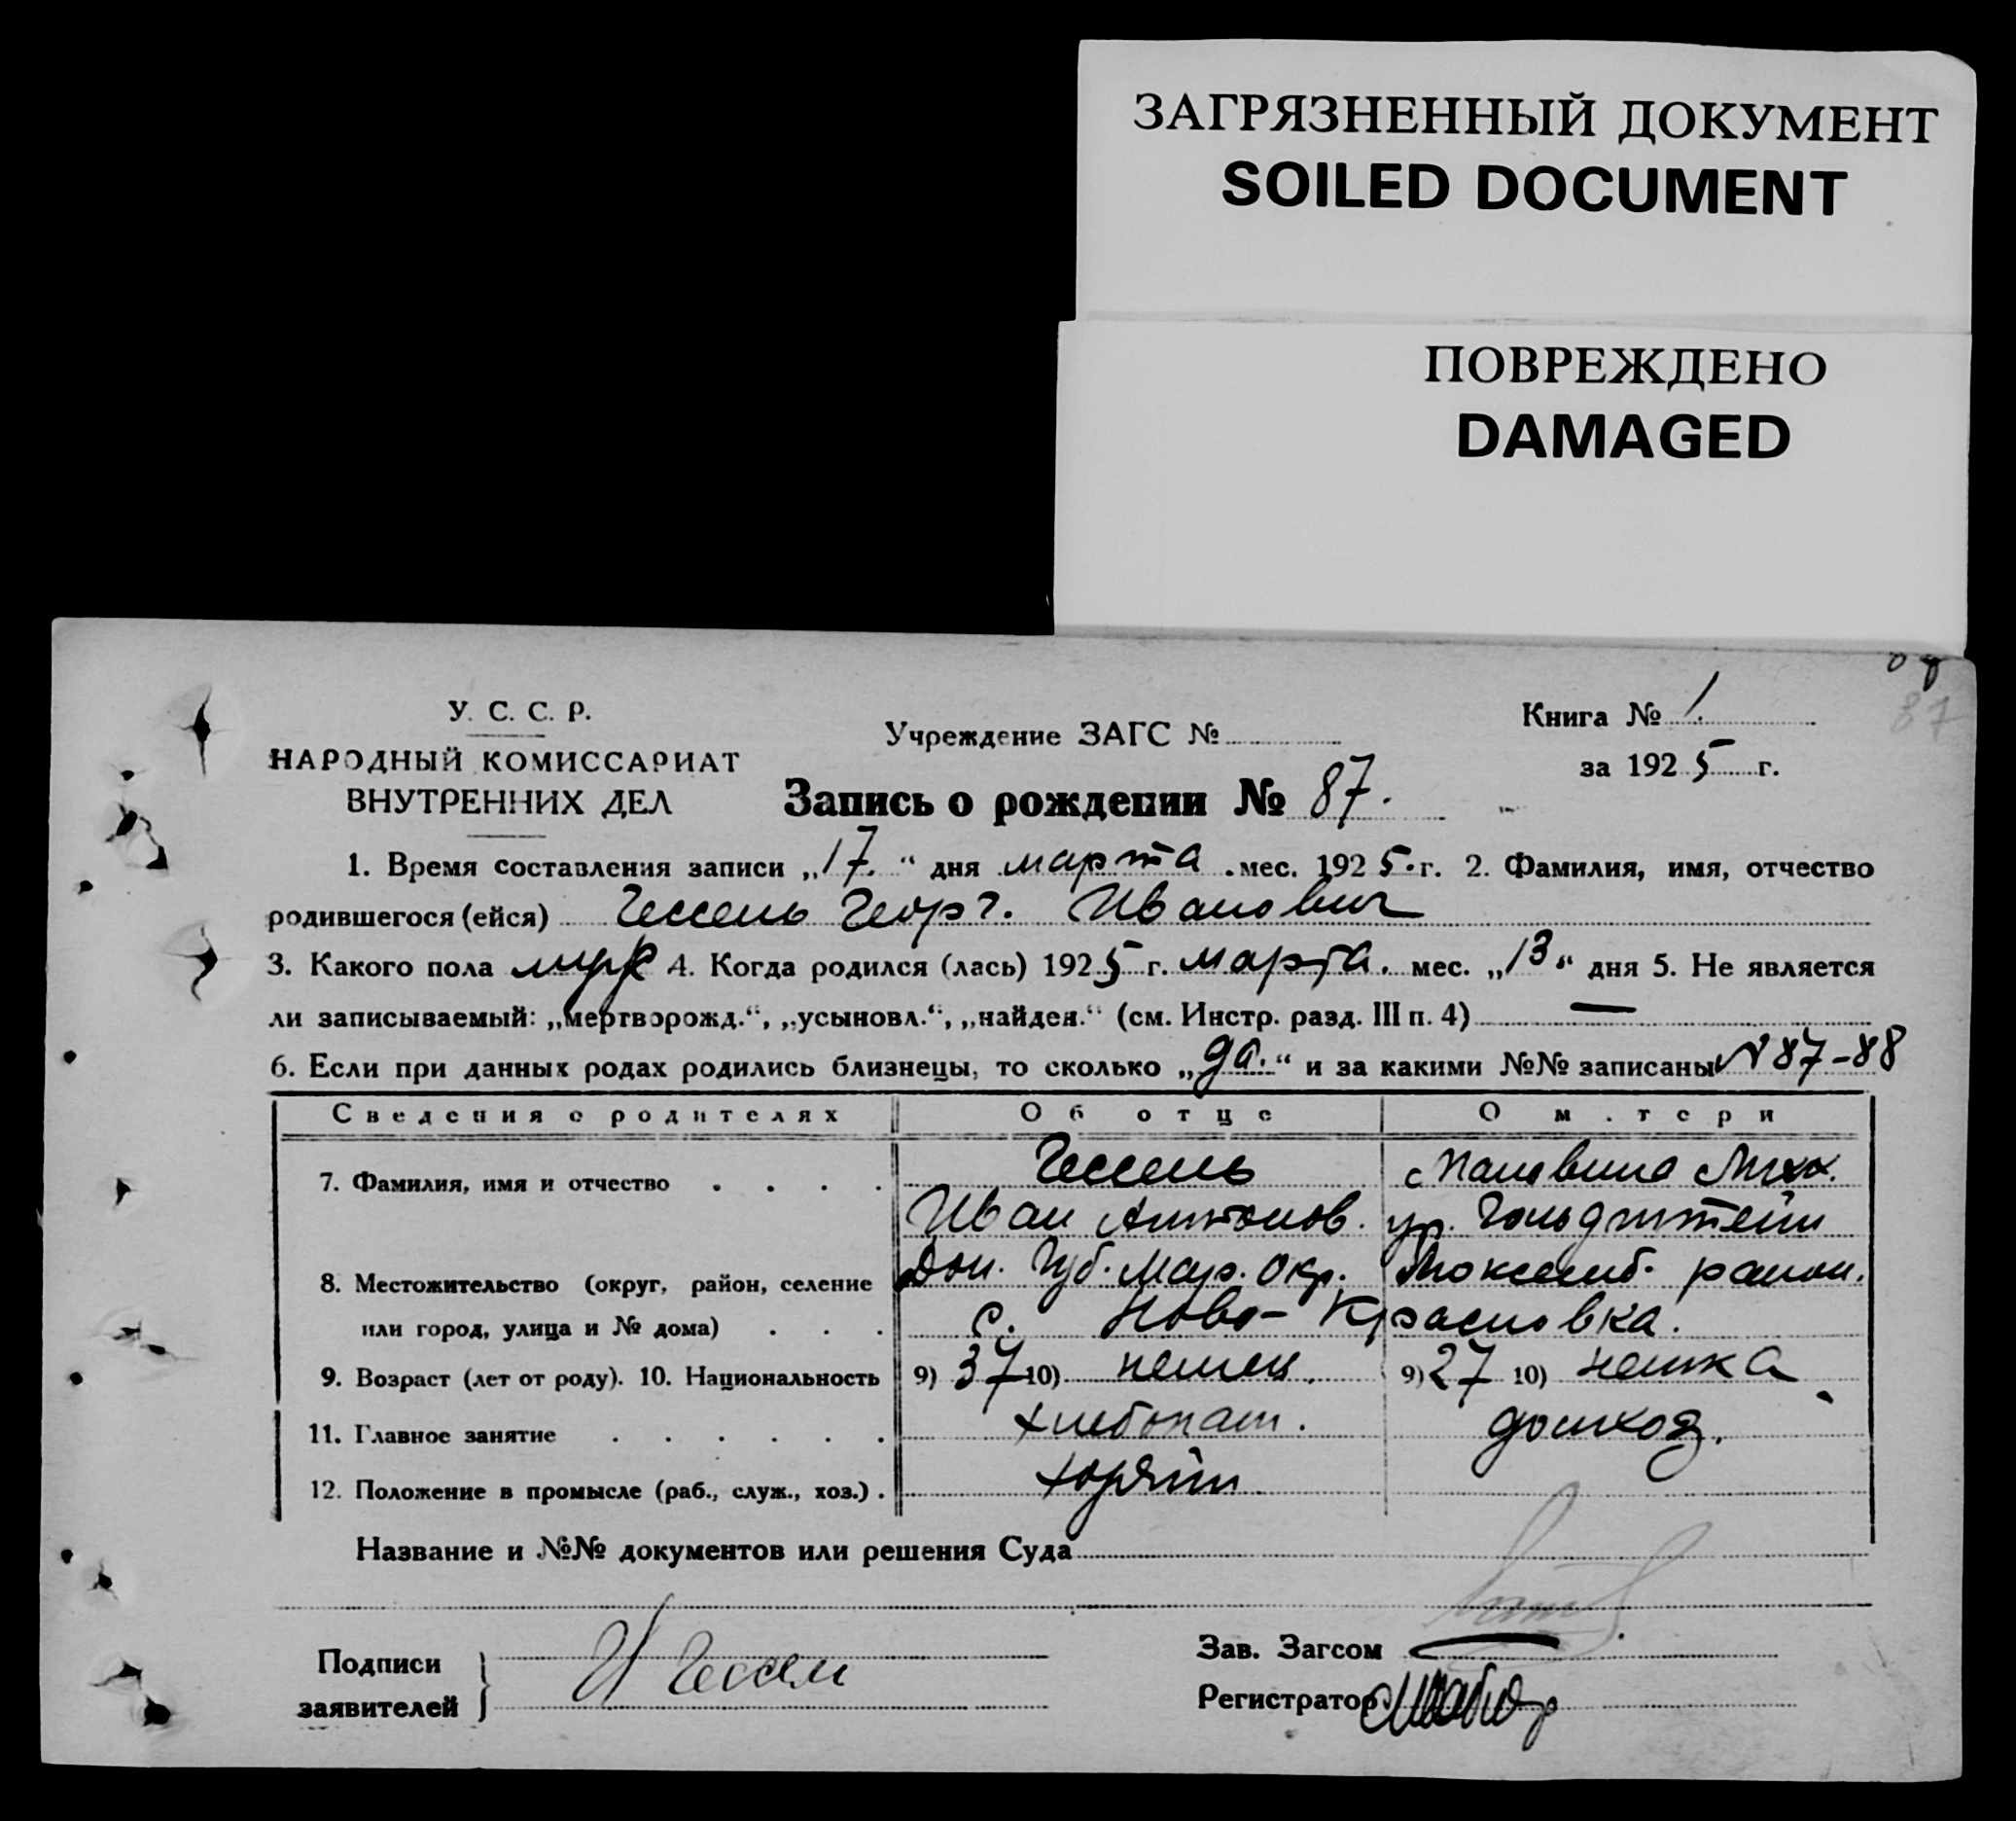 ЗАГРЯЗНЕННЫЙ ДОКУМЕНТ
SOILED DOCUMENT
ПОВРЕЖДЕНО
DAMAGED
87
У. С. С. Р.
НАРОДНЫЙ КОМИССАРИАТ
ВНУТРЕННИХ ДЕЛ
Учреждение ЗАГС №
Книга № 1.
за 1925 г.
Запись о рождении № 87.
1. Время составления записи „17.“ дня марта. мес. 1925. г. 2. Фамилия, имя, отчество
родившегося (ейся) Гессель Георг. Иванович
3. Какого пола муж 4. Когда родился (лась) 1925 г. марта. мес. „13“ дня 5. Не является
ли записываемый: „мертворожд.“, „усыновл.“, „найден.“ (см. Инстр. разд. III п. 4) —
6. Если при данных родах родились близнецы, то сколько „да.“ и за какими №№ записаны № 87-88
Сведения о родителях Об отце О м.тери
7. Фамилия, имя и отчество . . . . Гессель Мальвина Мих.
Иван Антонов. ур. Гольдштейн
8. Местожительство (округ, район, селение Дон. Губ. Мар. Окр. район.
или город, улица и № дома) . . . с. Ново-Красновка.
9. Возраст (лет от роду). 10. Национальность 9) 37 10) немец. 9) 27 10) немка
11. Главное занятие . . . . . . хлебопаш. домхоз.
12. Положение в промысле (раб., служ., хоз.) . хозяин
Название и №№ документов или решения Суда
Подписи заявителей } И Гессель
Зав. Загсом
Регистратор